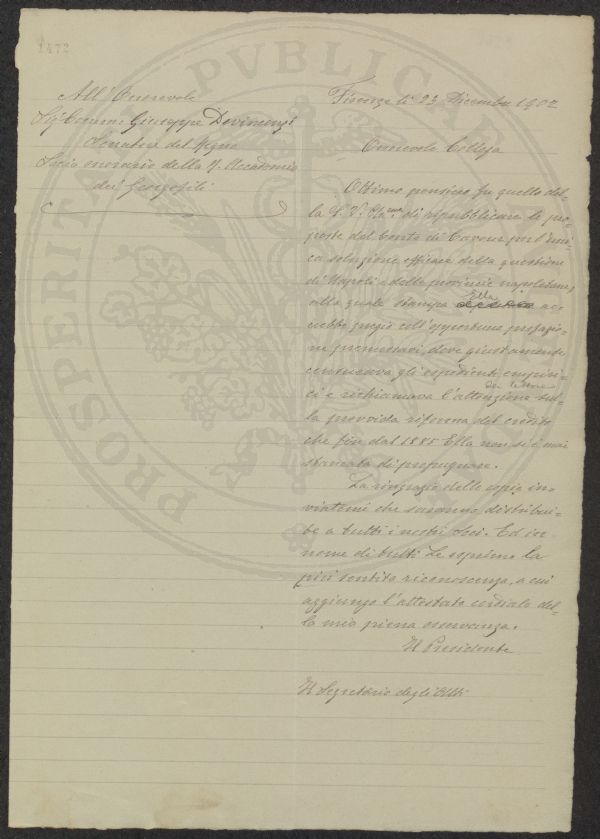 1472
All'Onorevole
Sig. Comm. Giuseppe Devincenzi
Senatore del Regno
Socio onorario della R. Accademia
dei Georgofili
Firenze li 23 Dicembre 1902
Onorevole Collega
Ottimo pensiero fu quello del=
la S. V. Ill.ma di ripubblicare le pro=
poste del Conte di Cavour per l'uni=
ca soluzione efficace della questione
di Napoli e delle provincie napoletane,
alla quale stampa Ella ac=
crebbe pregio coll'opportuna prefazio=
ne premessavi, dove giustamente
censurava gli espedienti empiri=
ci e richiamava l'attenzione sul=
la provvida riforma del credito
che fin dal 1885 Ella non si è mai
stancata di propugnare.
La ringrazio delle copie in=
viatemi che saranno distribui=
te a tutti i nostri Soci. Ed in
nome di tutti Le esprimo la
più sentita riconoscenza, a cui
aggiungo l'attestato cordiale del=
la mia piena osservanza.
Il Presidente
Il Segretario degli Atti
PROSPERITA PVBLICAE